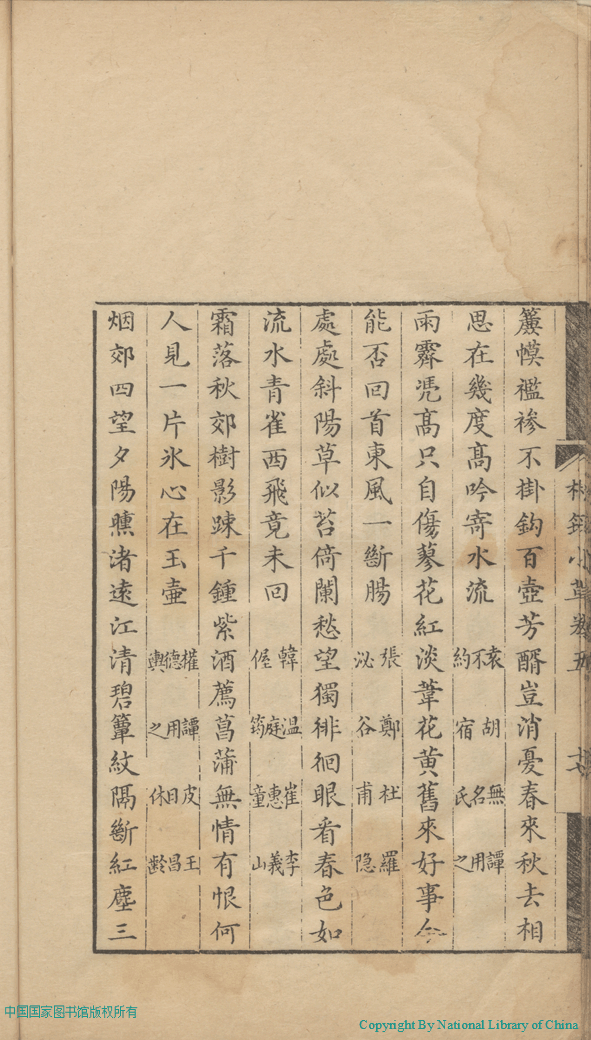 小草卷五
簾幙襤襂不掛鈎百壺芳醑豈消憂春來秋去相
思在幾度髙吟寄水流 袁不約 胡宿 無名氏 譚用之
雨霽凭髙只自傷蓼花紅淡葦花黄舊來好事今
能否回首東風一斷腸 張泌 鄭谷 杜甫 羅隐
處處斜陽草似苔倚闌愁望獨徘徊眼看春色如
流水青雀西飛竟未回 韓偓 温庭筠 崔惠童 李義山
霜落秋郊樹影踈千鍾紫酒薦菖蒲無情有恨何
人見一片氷心在玉壺 權德輿 譚用之 皮日休 王昌齡
烟郊四望夕陽曛渚遠江清碧簟紋隅斷紅塵三
中国国家图书馆版权所有
Copyright By National Library of China